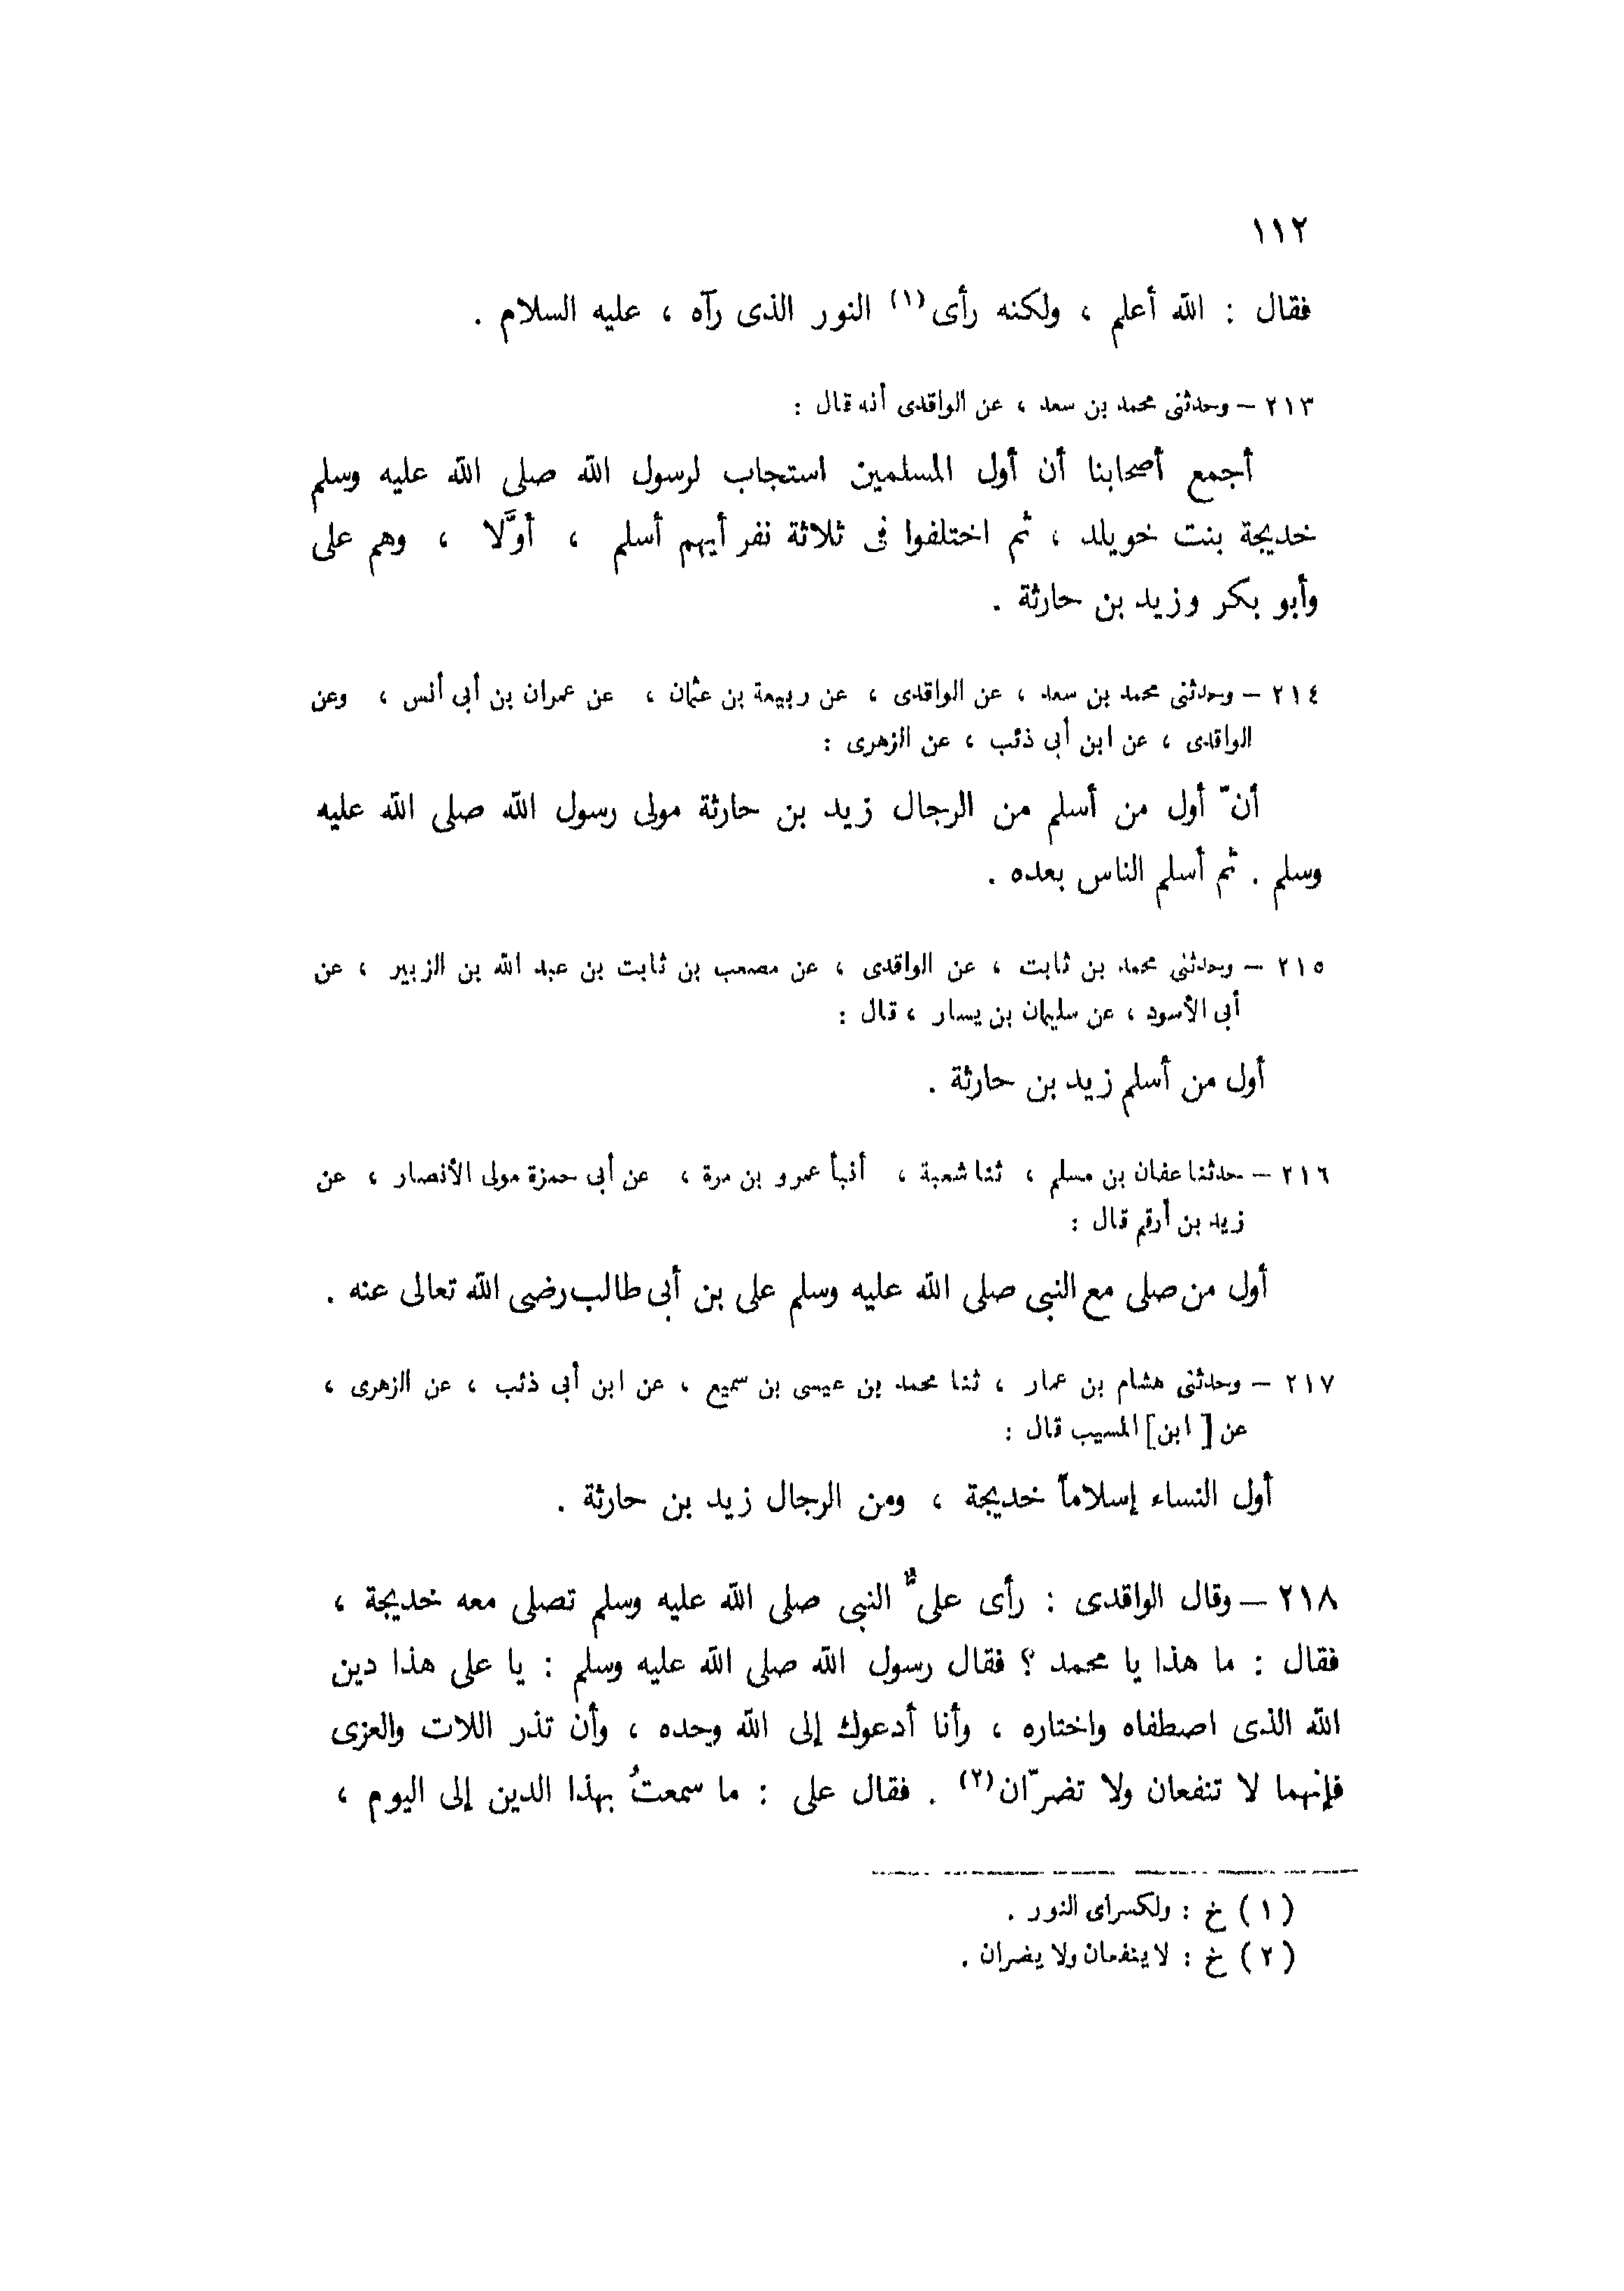 ١١٢
فقال : الله أعلم ، ولكنه رأى(١) النور الذى رآه ، عليه السلام .
٢١٣ – وحدثنى محمد بن سعد ، عن الواقدى أنه قال :
أجمع أصحابنا أن أول المسلمين استجاب لرسول الله صلى الله عليه وسلم
خديجة بنت خويلد ، ثم اختلفوا فى ثلاثة نفر أيهم أسلم ، أوَّلا ، وهم على
وأبو بكر وزيد بن حارثة .
٢١٤ – وحدثنى محمد بن سعد ، عن الواقدى ، عن ربيعة بن عثمان ، عن عمران بن أبى أنس ، وعن
الواقدى ، عن ابن أبى ذئب ، عن الزهرى :
أنّ أول من أسلم من الرجال زيد بن حارثة مولى رسول الله صلى الله عليه
وسلم . ثم أسلم الناس بعده .
٢١٥ – وحدثنى محمد بن ثابت ، عن الواقدى ، عن مصعب بن ثابت بن عبد الله بن الزبير ، عن
أبى الأسود ، عن سليمان بن يسار ، قال :
أول من أسلم زيد بن حارثة .
٢١٦ – حدثنا عفان بن مسلم ، ثنا شعبة ، أنبأ عمرو بن مرة ، عن أبى حمزة مولى الأنصار ، عن
زيد بن أرقم قال :
أول من صلى مع النبى صلى الله عليه وسلم على بن أبى طالب رضى الله تعالى عنه .
٢١٧ – وحدثنى هشام بن عمار ، ثنا محمد بن عيسى بن سميع ، عن ابن أبى ذئب ، عن الزهرى ،
عن [ ابن] المسيب قال :
أول النساء إسلاماً خديجة ، ومن الرجال زيد بن حارثة .
٢١٨ – وقال الواقدى : رأى علىٌّ النبى صلى الله عليه وسلم تصلى معه خديجة ،
فقال : ما هذا يا محمد ؟ فقال رسول الله صلى الله عليه وسلم : يا على هذا دين
الله الذى اصطفاه واختاره ، وأنا أدعوك إلى الله وحده ، وأن تذر اللات والعزى
فإنهما لا تنفعان ولا تضرّان(٢) . فقال على : ما سمعتُ بهذا الدين إلى اليوم ،
( ١ ) خ : ولكسراى النور .
( ٢ ) خ : لا ينفعان ولا يضران .